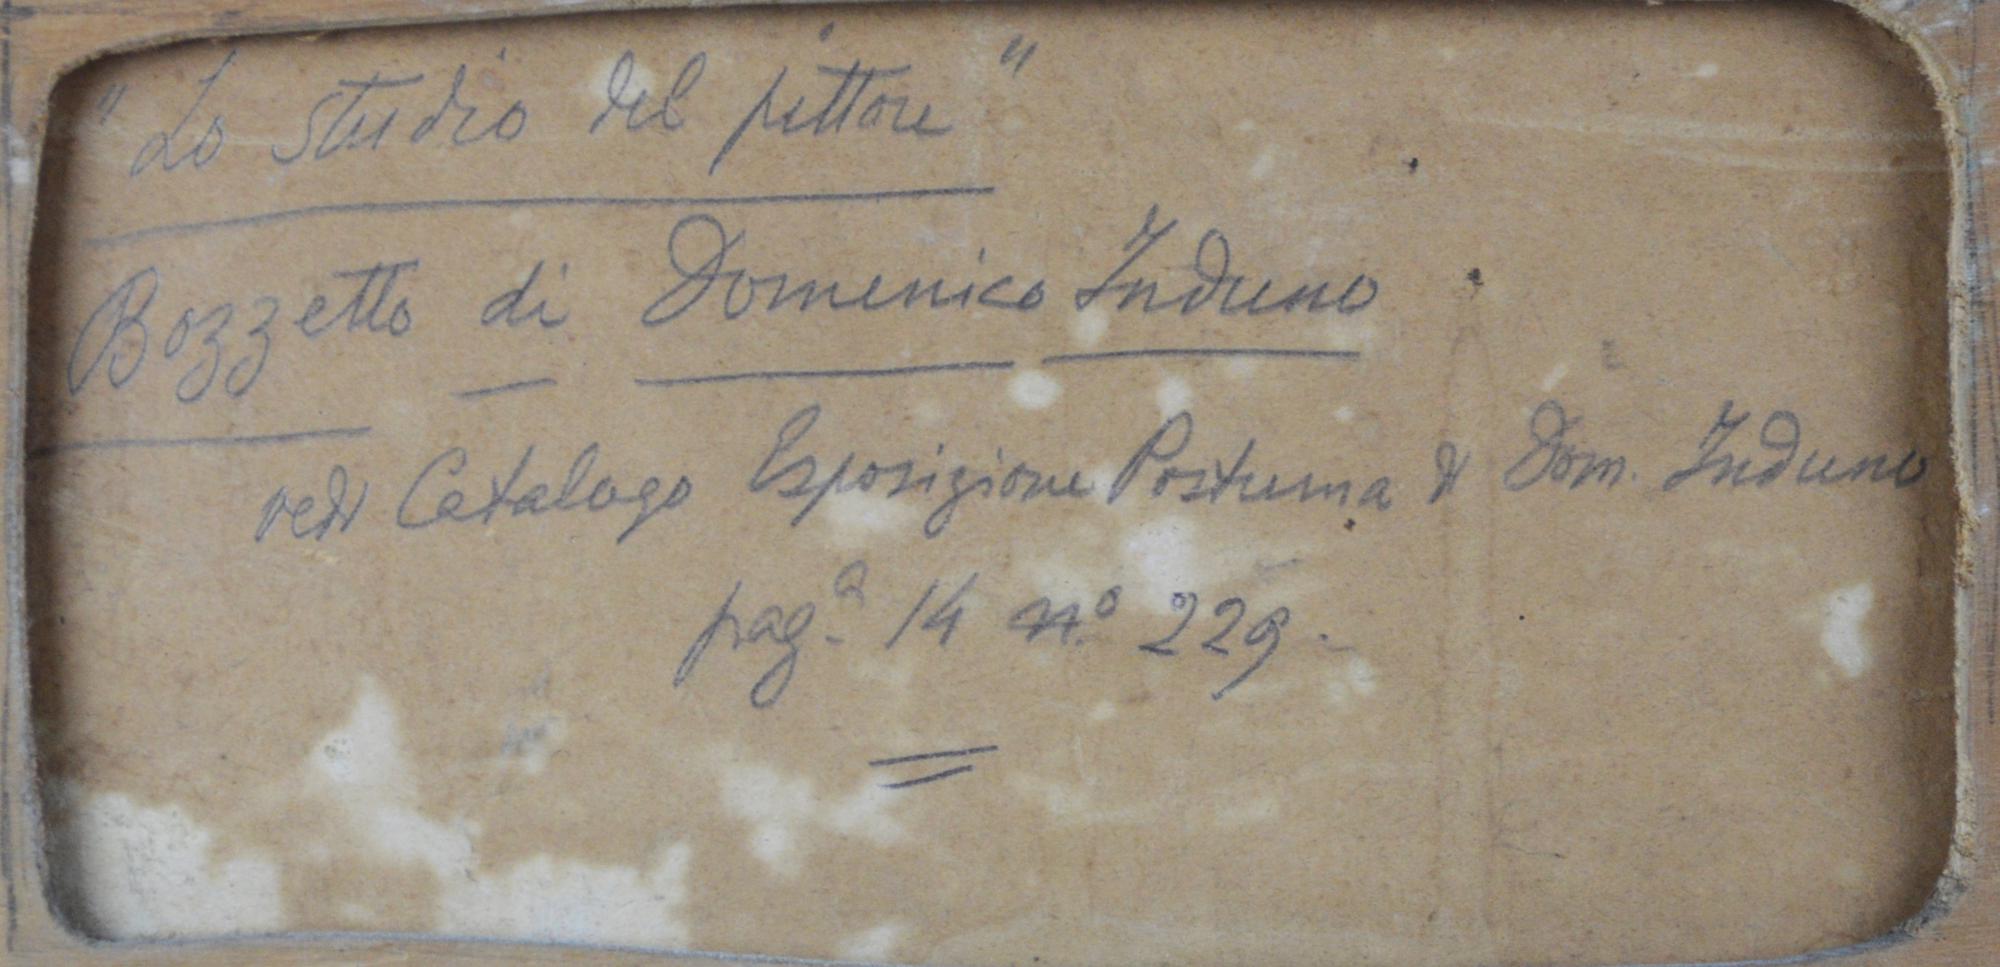 "Lo studio del pittore"
Bozzetto di Domenico Induno
vedi Catalogo Esposizione Postuma di Dom. Induno
pag.ª 14 n.º 229.